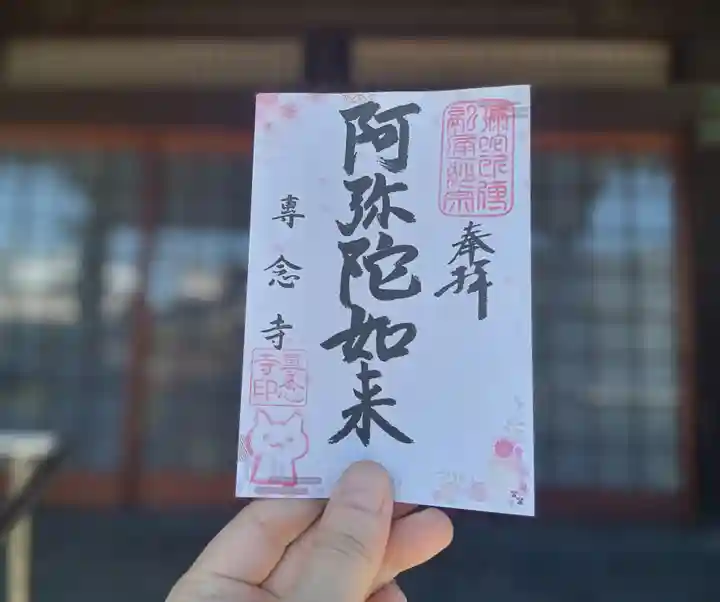 奉拝
阿弥陀如来
專念寺
專念寺印